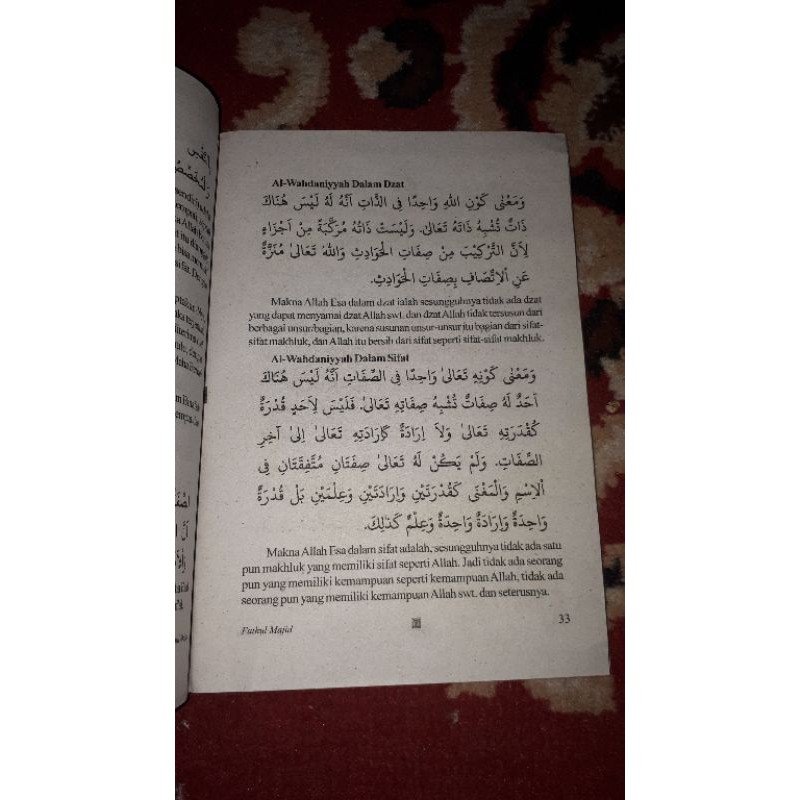 Al-Wahdaniyyah Dalam Dzat
وَمَعْنَى كَوْنِ اللهِ وَاحِدًا فِى الذَّاتِ اَنَّهُ لَهُ لَيْسَ هُنَاكَ
ذَاتٌ تُشْبِهُ ذَاتَهُ تَعَالَى. وَلَيْسَتْ ذَاتُهُ مُرَكَّبَةً مِنْ اَجْزَاءٍ
لِاَنَّ التَّرْكِيْبَ مِنْ صِفَاتِ الْحَوَادِثِ وَاللهُ تَعَالَى مُنَزَّهٌ
عَنِ اْلاِتِّصَافِ بِصِفَاتِ الْحَوَادِثِ.
Makna Allah Esa dalam dzat ialah sesungguhnya tidak ada dzat
yang dapat menyamai dzat Allah swt. dan dzat Allah tidak tersusun dari
berbagai unsur/bagian, karena susunan unsur-unsur itu bagian dari sifat-
sifat makhluk, dan Allah itu bersih dari sifat seperti sifat-sifat makhluk.
Al-Wahdaniyyah Dalam Sifat
وَمَعْنَى كَوْنِهِ تَعَالَى وَاحِدًا فِى الصِّفَاتِ اَنَّهُ لَيْسَ هُنَاكَ
اَحَدٌ لَهُ صِفَاتٌ تُشْبِهُ صِفَاتِهِ تَعَالَى. فَلَيْسَ لِاَحَدٍ قُدْرَةٌ
كَقُدْرَتِهِ تَعَالَى وَلاَ اِرَادَةٌ كَاِرَادَتِهِ تَعَالَى اِلَى آخِرِ
الصِّفَاتِ. وَلَمْ يَكُنْ لَهُ تَعَالَى صِفَتَانِ مُتَّفِقَتَانِ فِى
اْلاِسْمِ وَالْمَعْنَى كَقُدْرَتَيْنِ وَاِرَادَتَيْنِ وَعِلْمَيْنِ بَلْ قُدْرَةٌ
وَاحِدَةٌ وَاِرَادَةٌ وَاحِدَةٌ وَعِلْمٌ كَذٰلِكَ.
Makna Allah Esa dalam sifat adalah, sesungguhnya tidak ada satu
pun makhluk yang memiliki sifat seperti Allah. Jadi tidak ada seorang
pun yang memiliki kemampuan seperti kemampuan Allah, tidak ada
seorang pun yang memiliki kemampuan Allah swt. dan seterusnya.
Fathul Majid
33